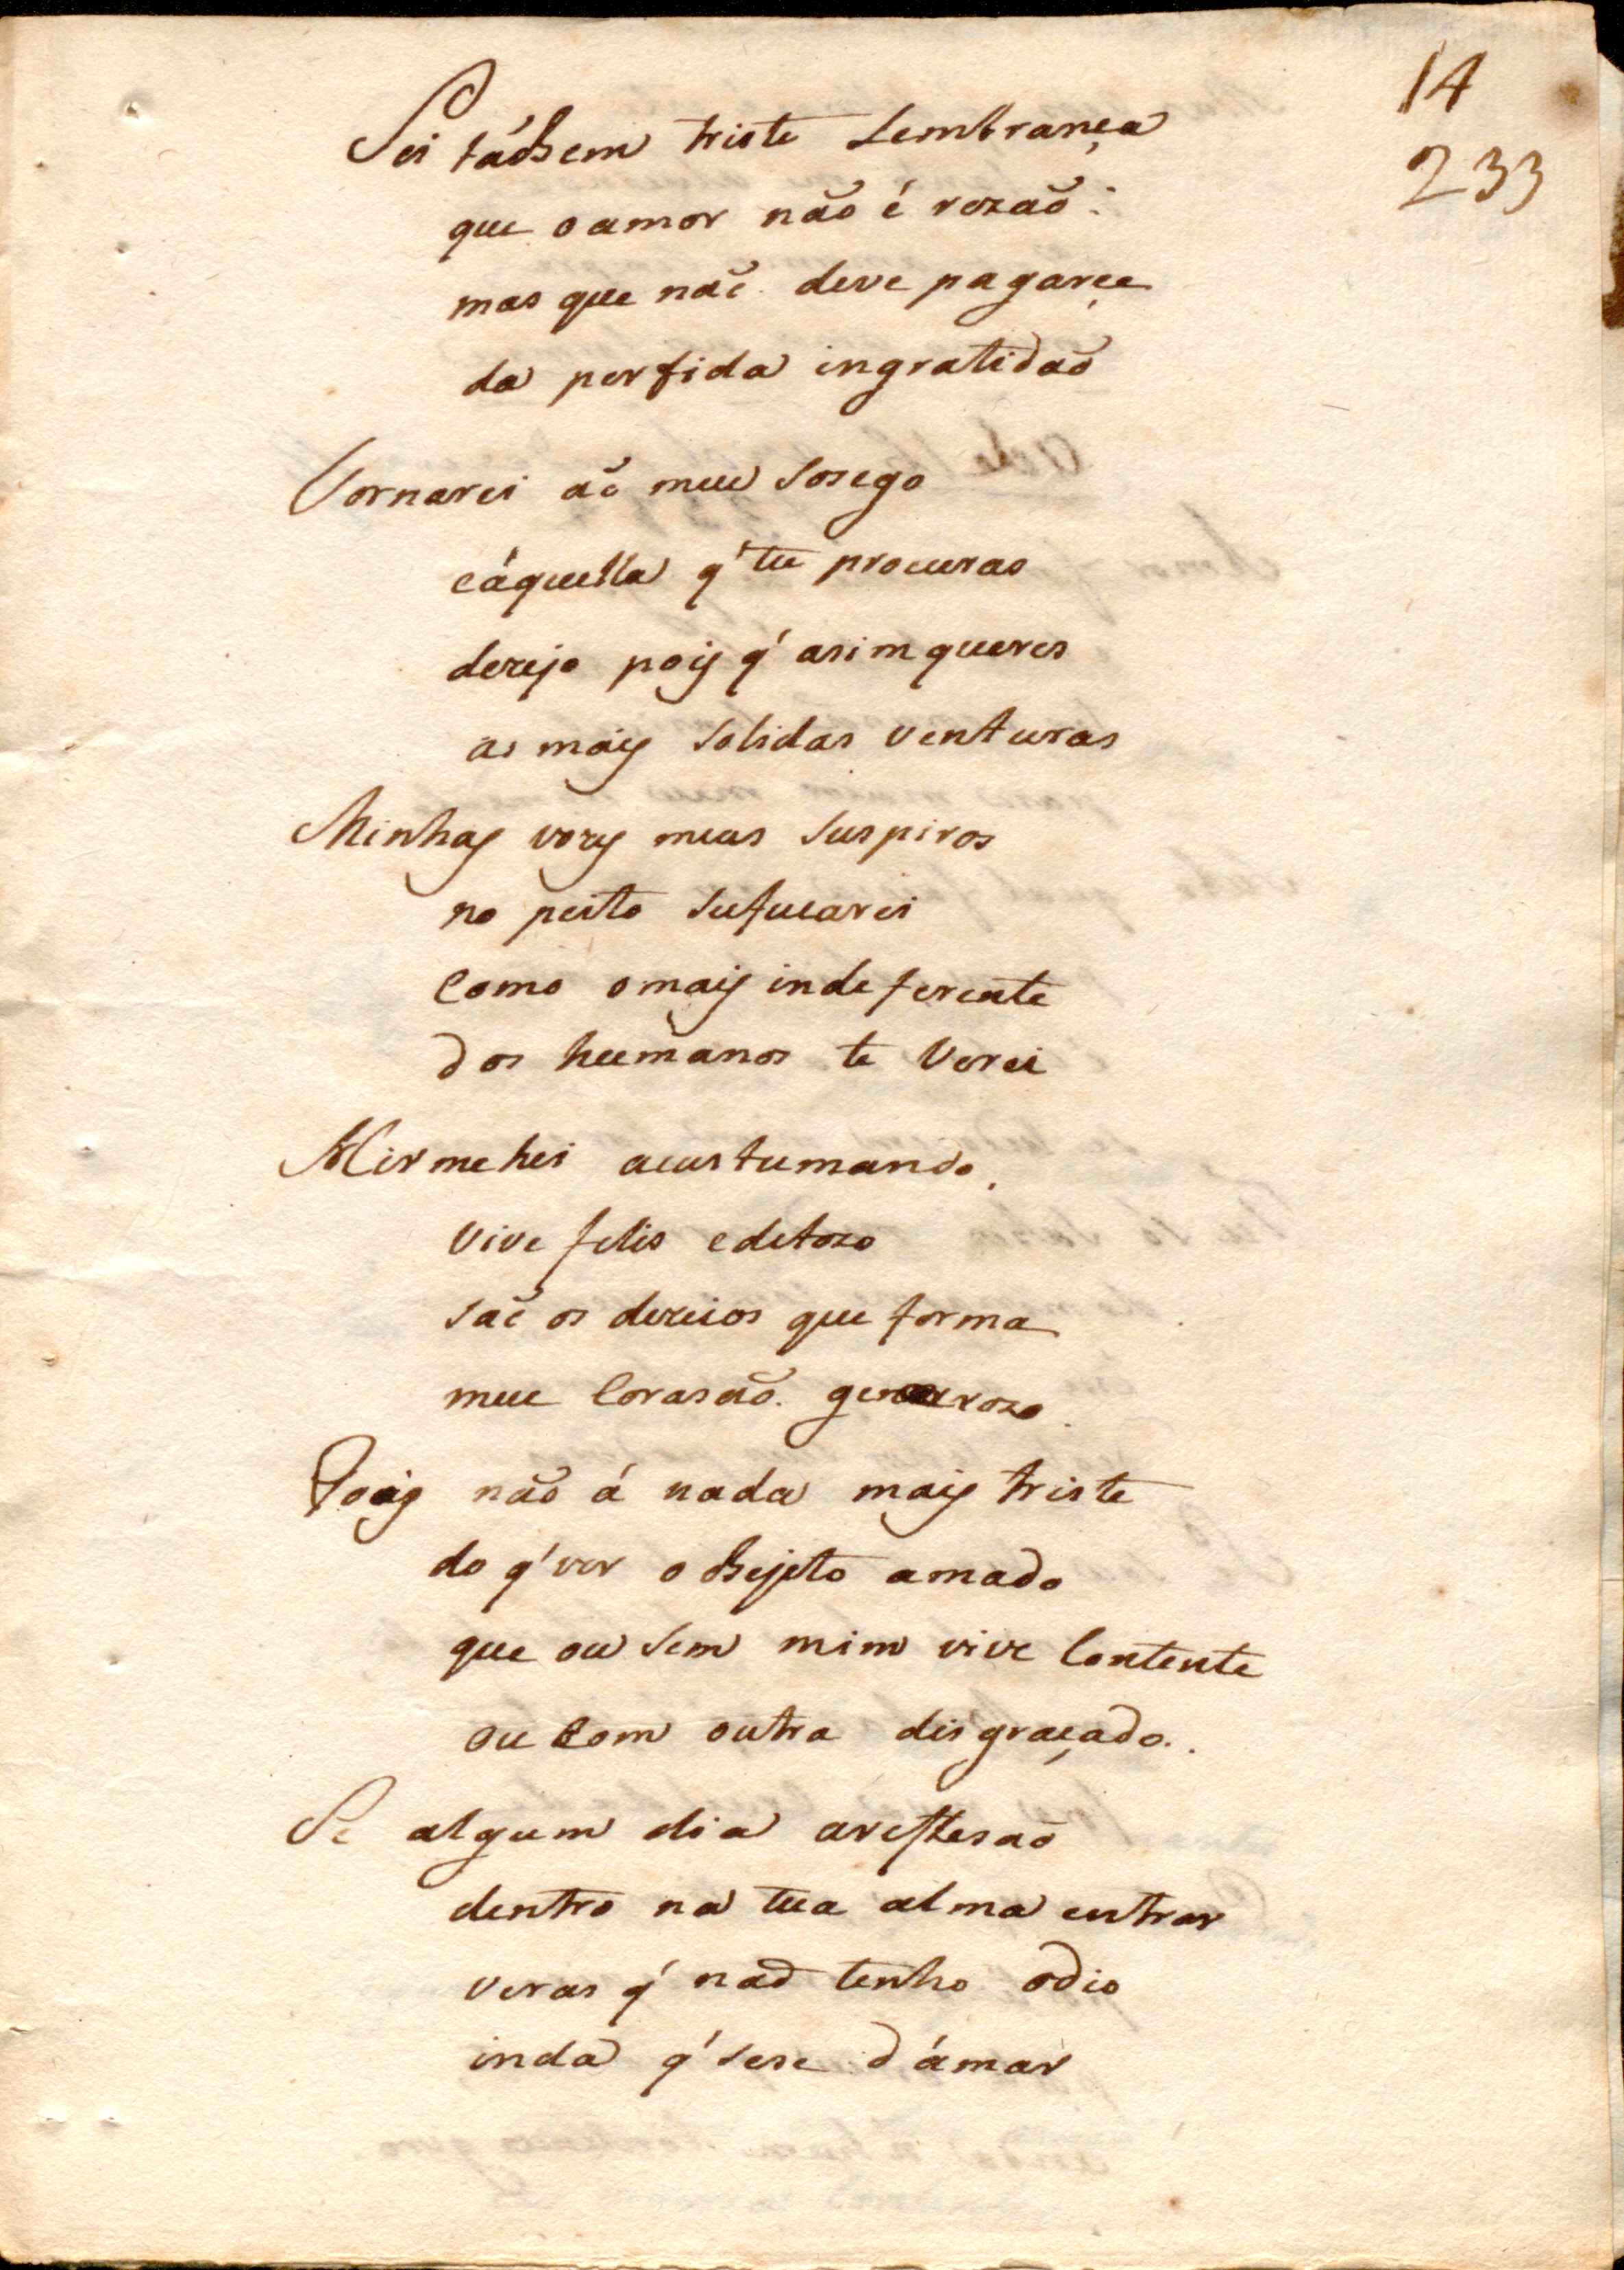 14
233
Sei táobem triste Lembrança
que o amor não é rozaõ:
mas que não deve pagarçe
da perfida ingratidaõ
Tornarei aõ meu sosego
eáquella q' tu procuras
dezejo pois q' asim queres
as mais solidas venturas
Minhas vozes meus suspiros
no peito sufucarei
Como o mais indeferente
dos humanos te verei
Hirmehei acustumando
vive felis e ditozo
saõ os dezeios que forma
meu Corasaõ. generozo
Pois não á nada mais triste
do q' ver o obejeto amado
que ou sem mim vive Contente
ou Com outra disgraçado.
Se algum dia areflesaõ
dentro na tua alma entrar
veras q' naõ tenho odio
inda q' sese d'ámar